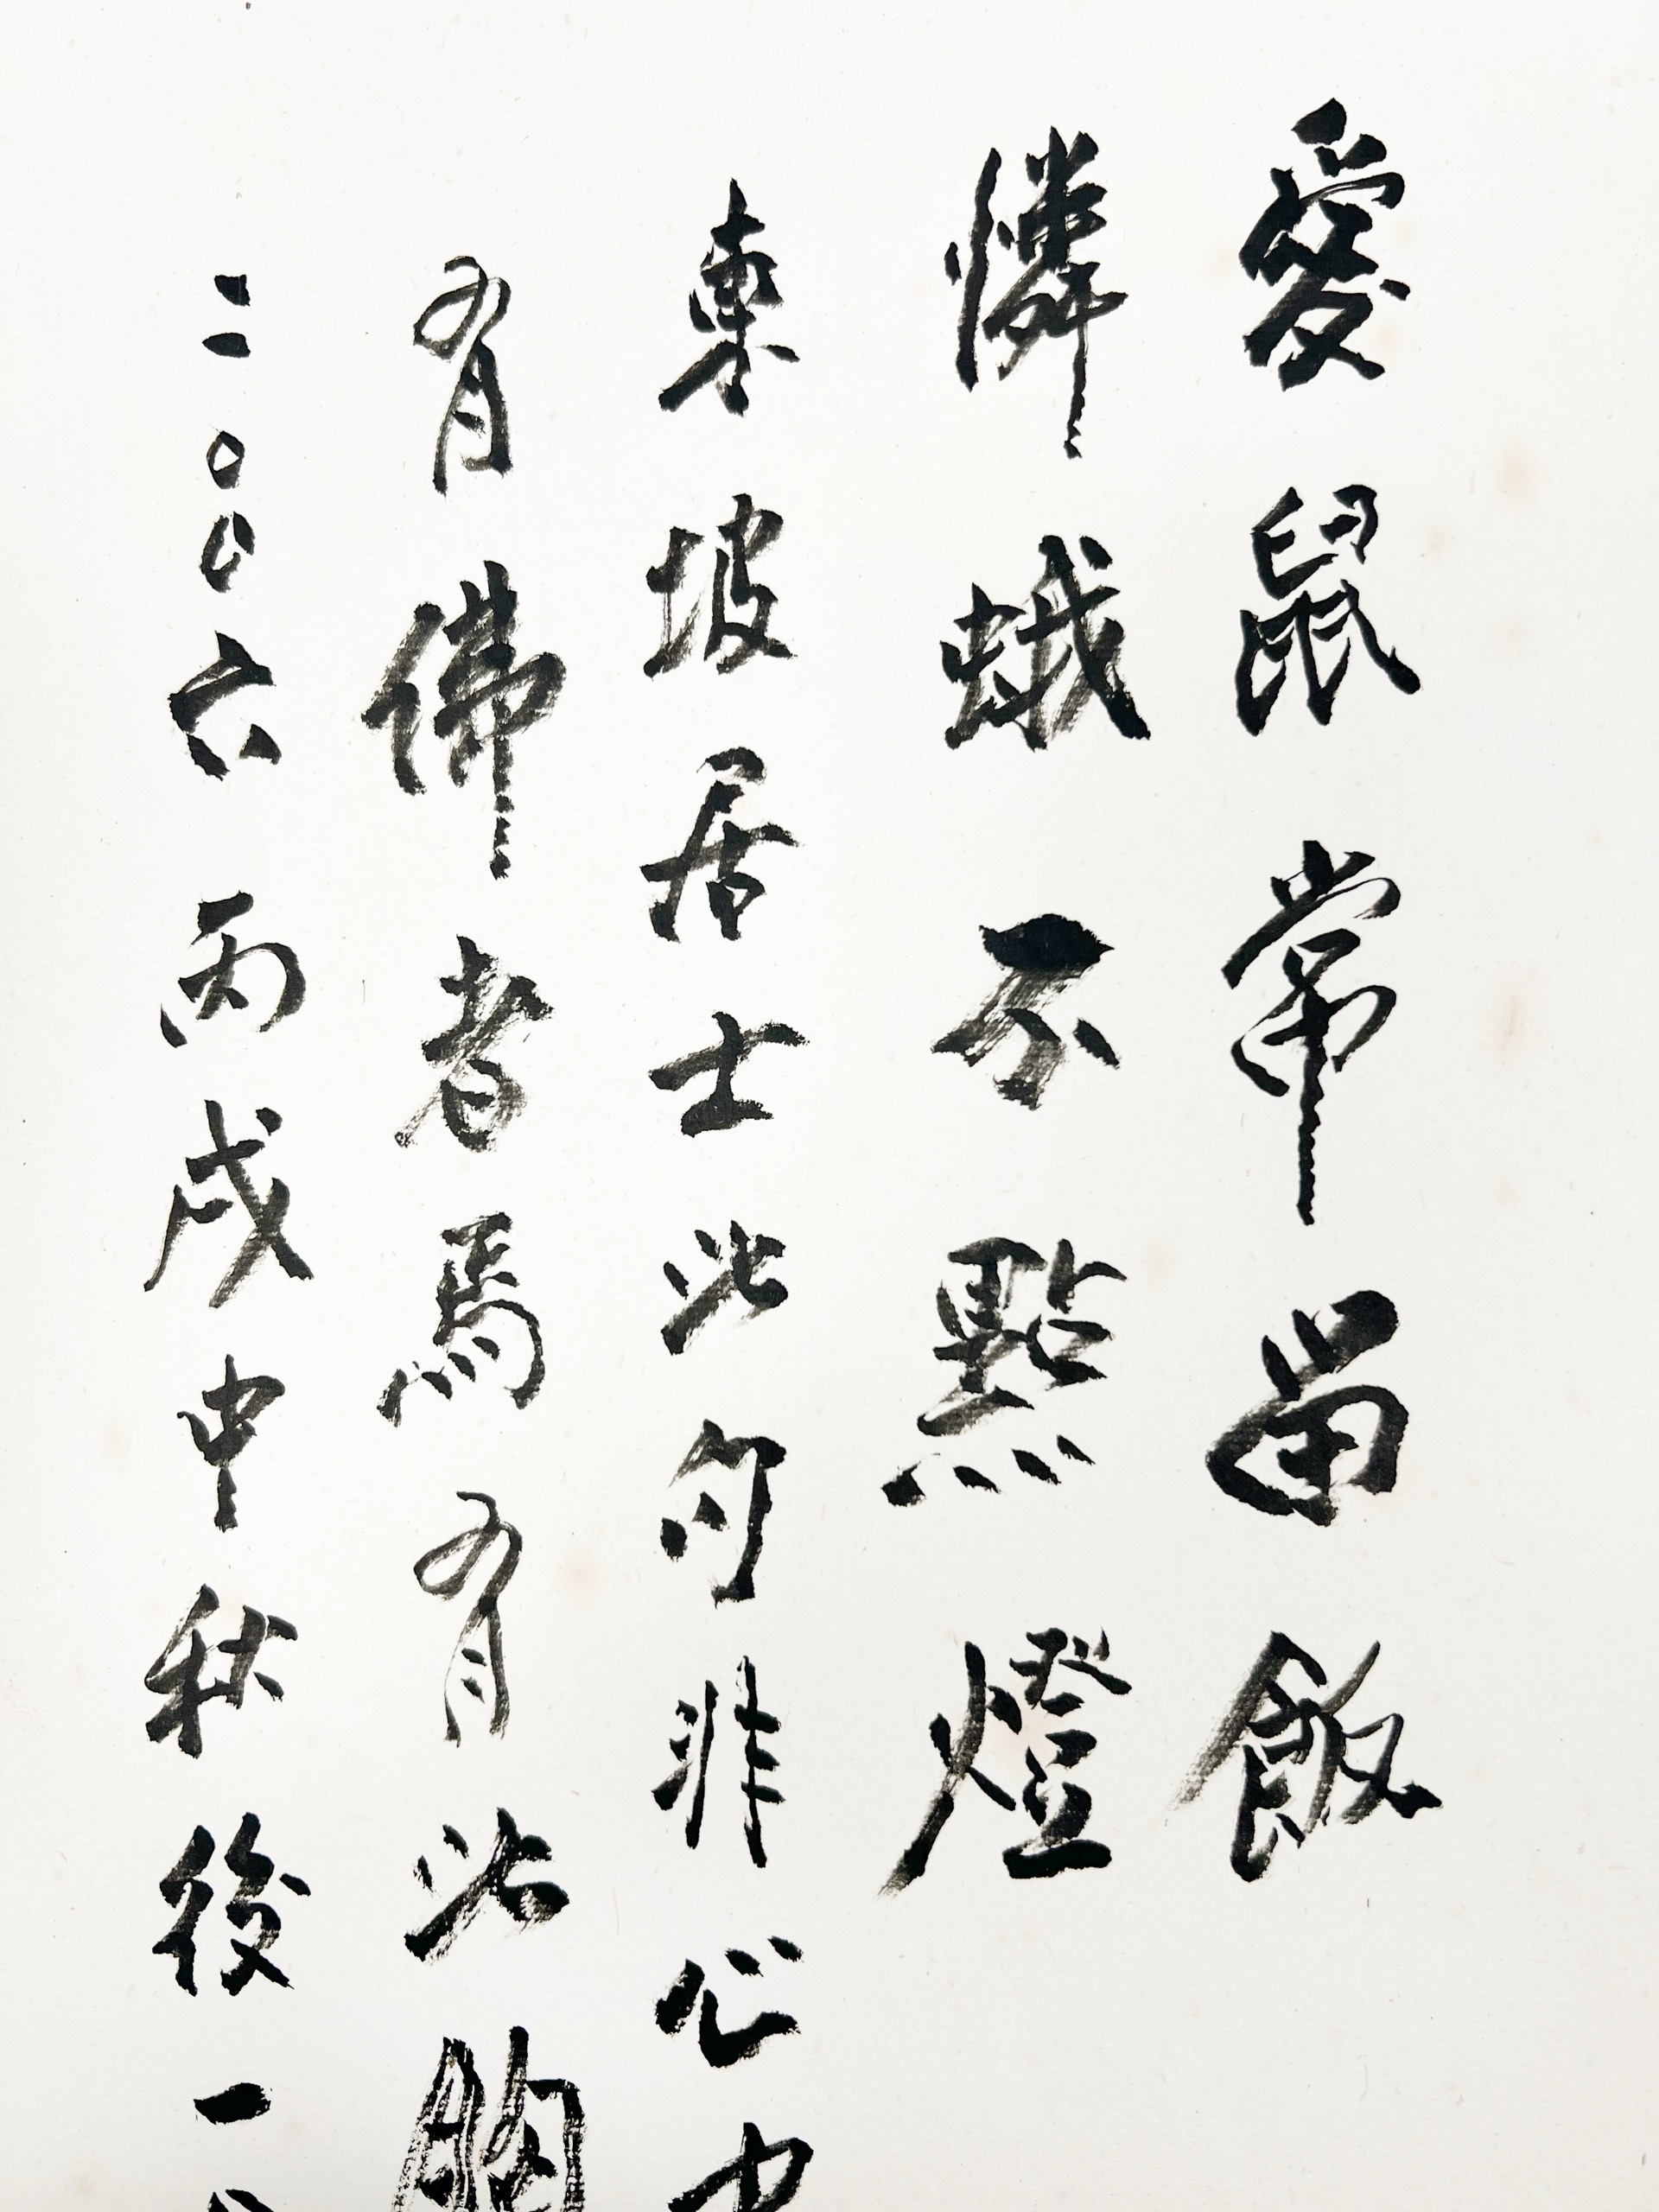 愛鼠常留飯
憐蛾不點燈
東坡居士此句非心中
有佛者焉有此胸
二〇〇六丙戌中秋後一